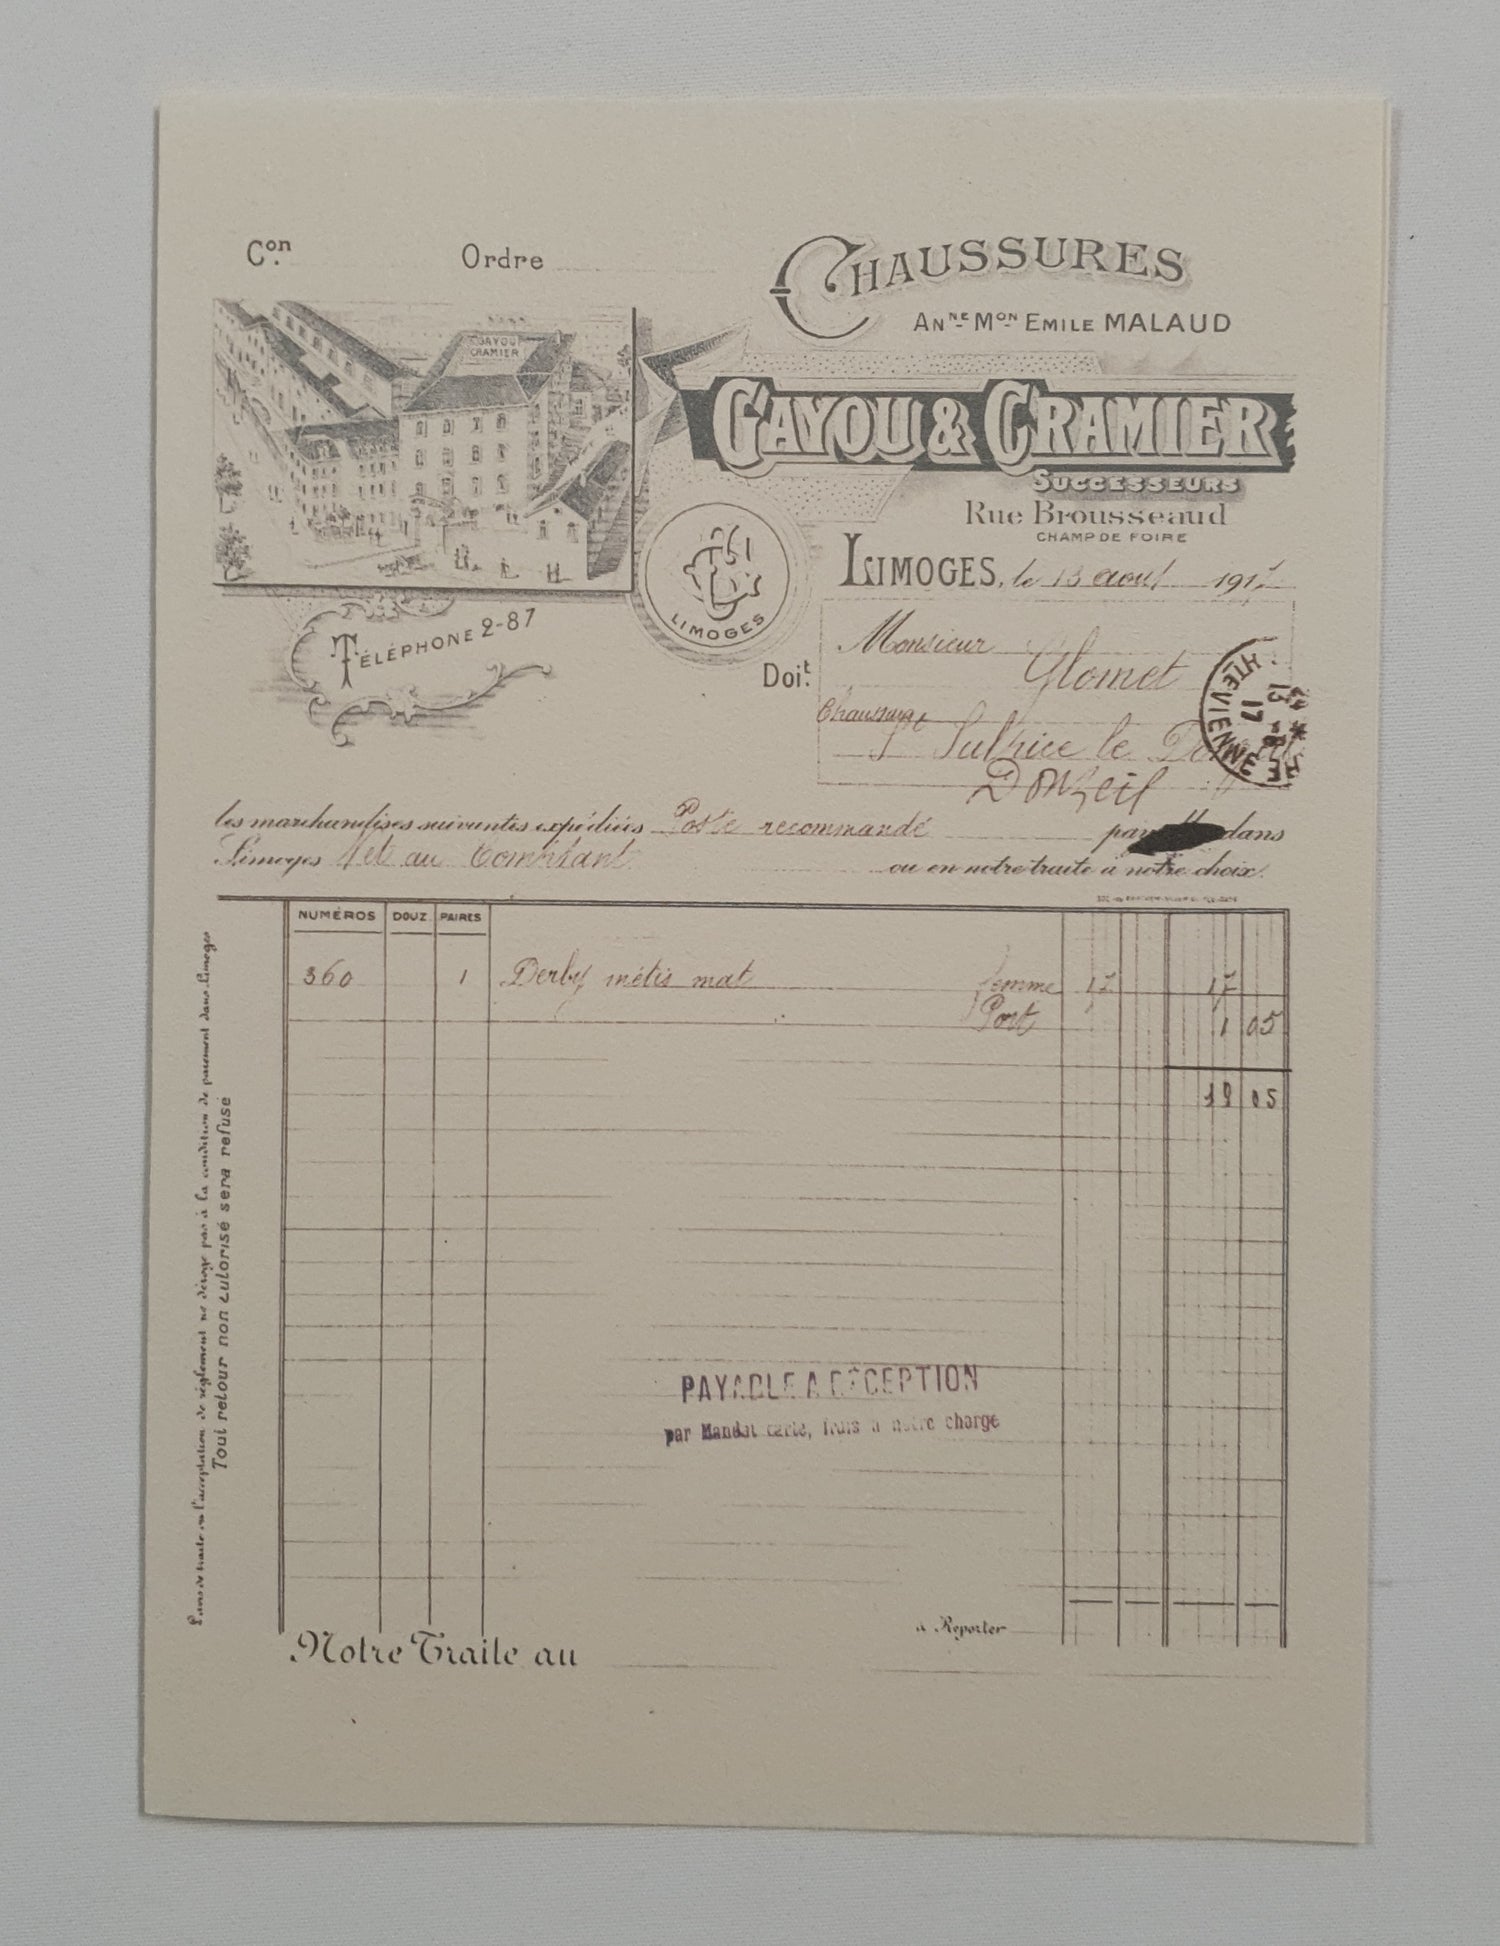 Con. Ordre
CHAUSSURES
ANNE MON EMILE MALAUD
GAYOU CRAMIER
GAYOU & CRAMIER
SUCCESSEURS
Rue Brousseaud
CHAMP DE FOIRE
LIMOGES, le 13 aout 1917
LIMOGES
TÉLÉPHONE 2-87
Monsieur Glomet
Doit
St Sulpice le
Donzeil
HTE VIENNE
13
17
les marchandises suivantes expédiées Poste recommandé pay dans
Limoges Net au Comptant ou en notre traite à notre choix.
NUMÉROS DOUZ. PAIRES
360 1 Derby métis mat femme 17 17
Port 1 05
18 05
L'avis de traite ou l'acceptation de règlement ne déroge pas à la condition de paiement dans Limoges
Tout retour non autorisé sera refusé
PAYABLE A RÉCEPTION
par Mandat carte, frais à notre charge
à Reporter
Notre Traite au